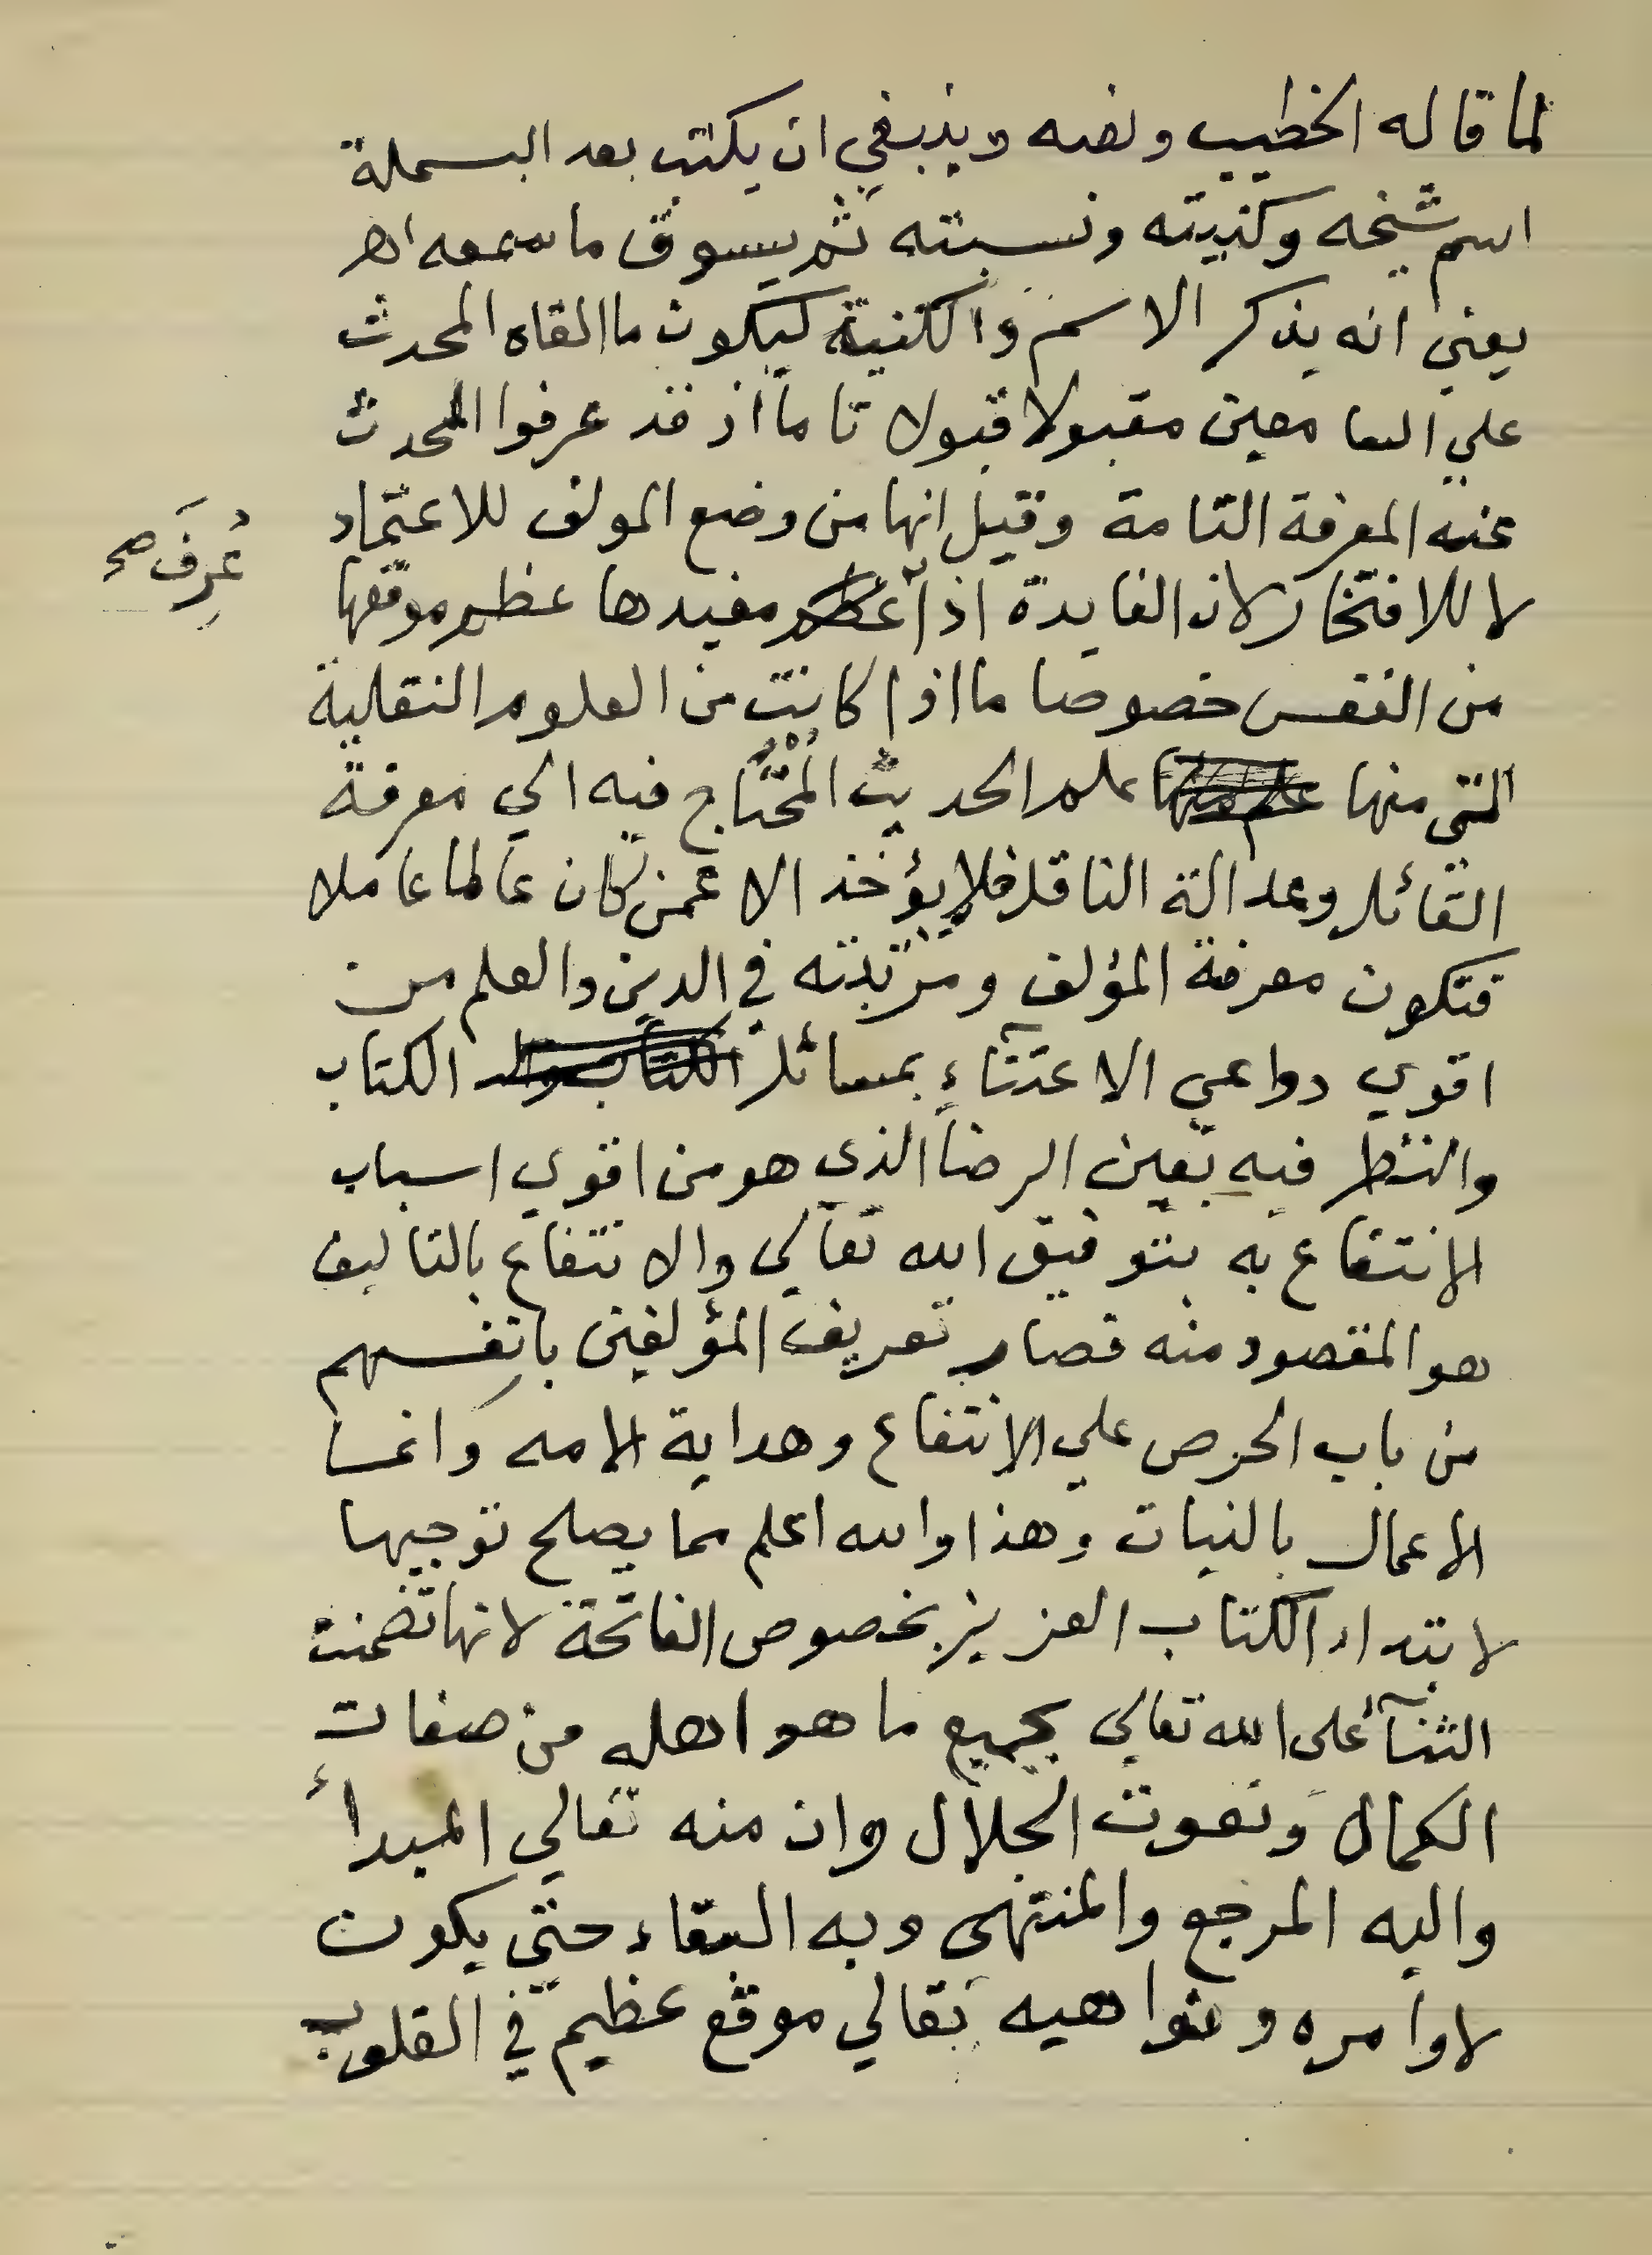 لما قاله الخطيب ونصه وينبغي ان يكتب بعد البسملة
اسم شيخه وكنيته ونسبته ثم يسوق ما سمعه اهـ
يعني انه يذكر الاسم والكنية ليكون ما القاه المحدث
علي السامعين مقبولا قبولا تاما اذ قد عرفوا المحدث
عنه المعرفة التامة وقيل انها من وضع المولف للاعتماد
لا للافتخار لان الفايدة اذا عظم مفيدها عظم موقعها
عُرِفَ صح
من النفس خصوصا ما اذا كانت من العلوم النقلية
التي منها علم الحديث المُحْتَاج فيه الي معرفة
القائل وعدالة الناقل فلا يؤخذ الا عمن كان عالما عاملا
فتكون معرفة المؤلف ومرتبته في الدين والعلم من
اقوي دواعي الاعتناءِ بمسائل الكتاب
والنظر فيه بعين الرضا الذي هو من اقوي اسباب
الانتفاع به بتوفيق الله تعالي والانتفاع بالتاليف
هو المقصود منه فصار تعريف المؤلفين بانفسهم
من باب الحرص علي الانتفاع وهداية الامه وانما
الاعمال بالنيات وهذا والله اعلم مما يصلح توجيها
لابتداء الكتاب العزيز بخصوص الفاتحة لانها تضمنت
الثنآء على الله تعالي بجميع ما هو اهله من صفات
الكمال ونعوت الجلال وان منه تعالي المبدأ
واليه المرجع والمنتهى وبه البقاء حتي يكون
لاوامره ونواهيه تعالي موقع عظيم في القلوب